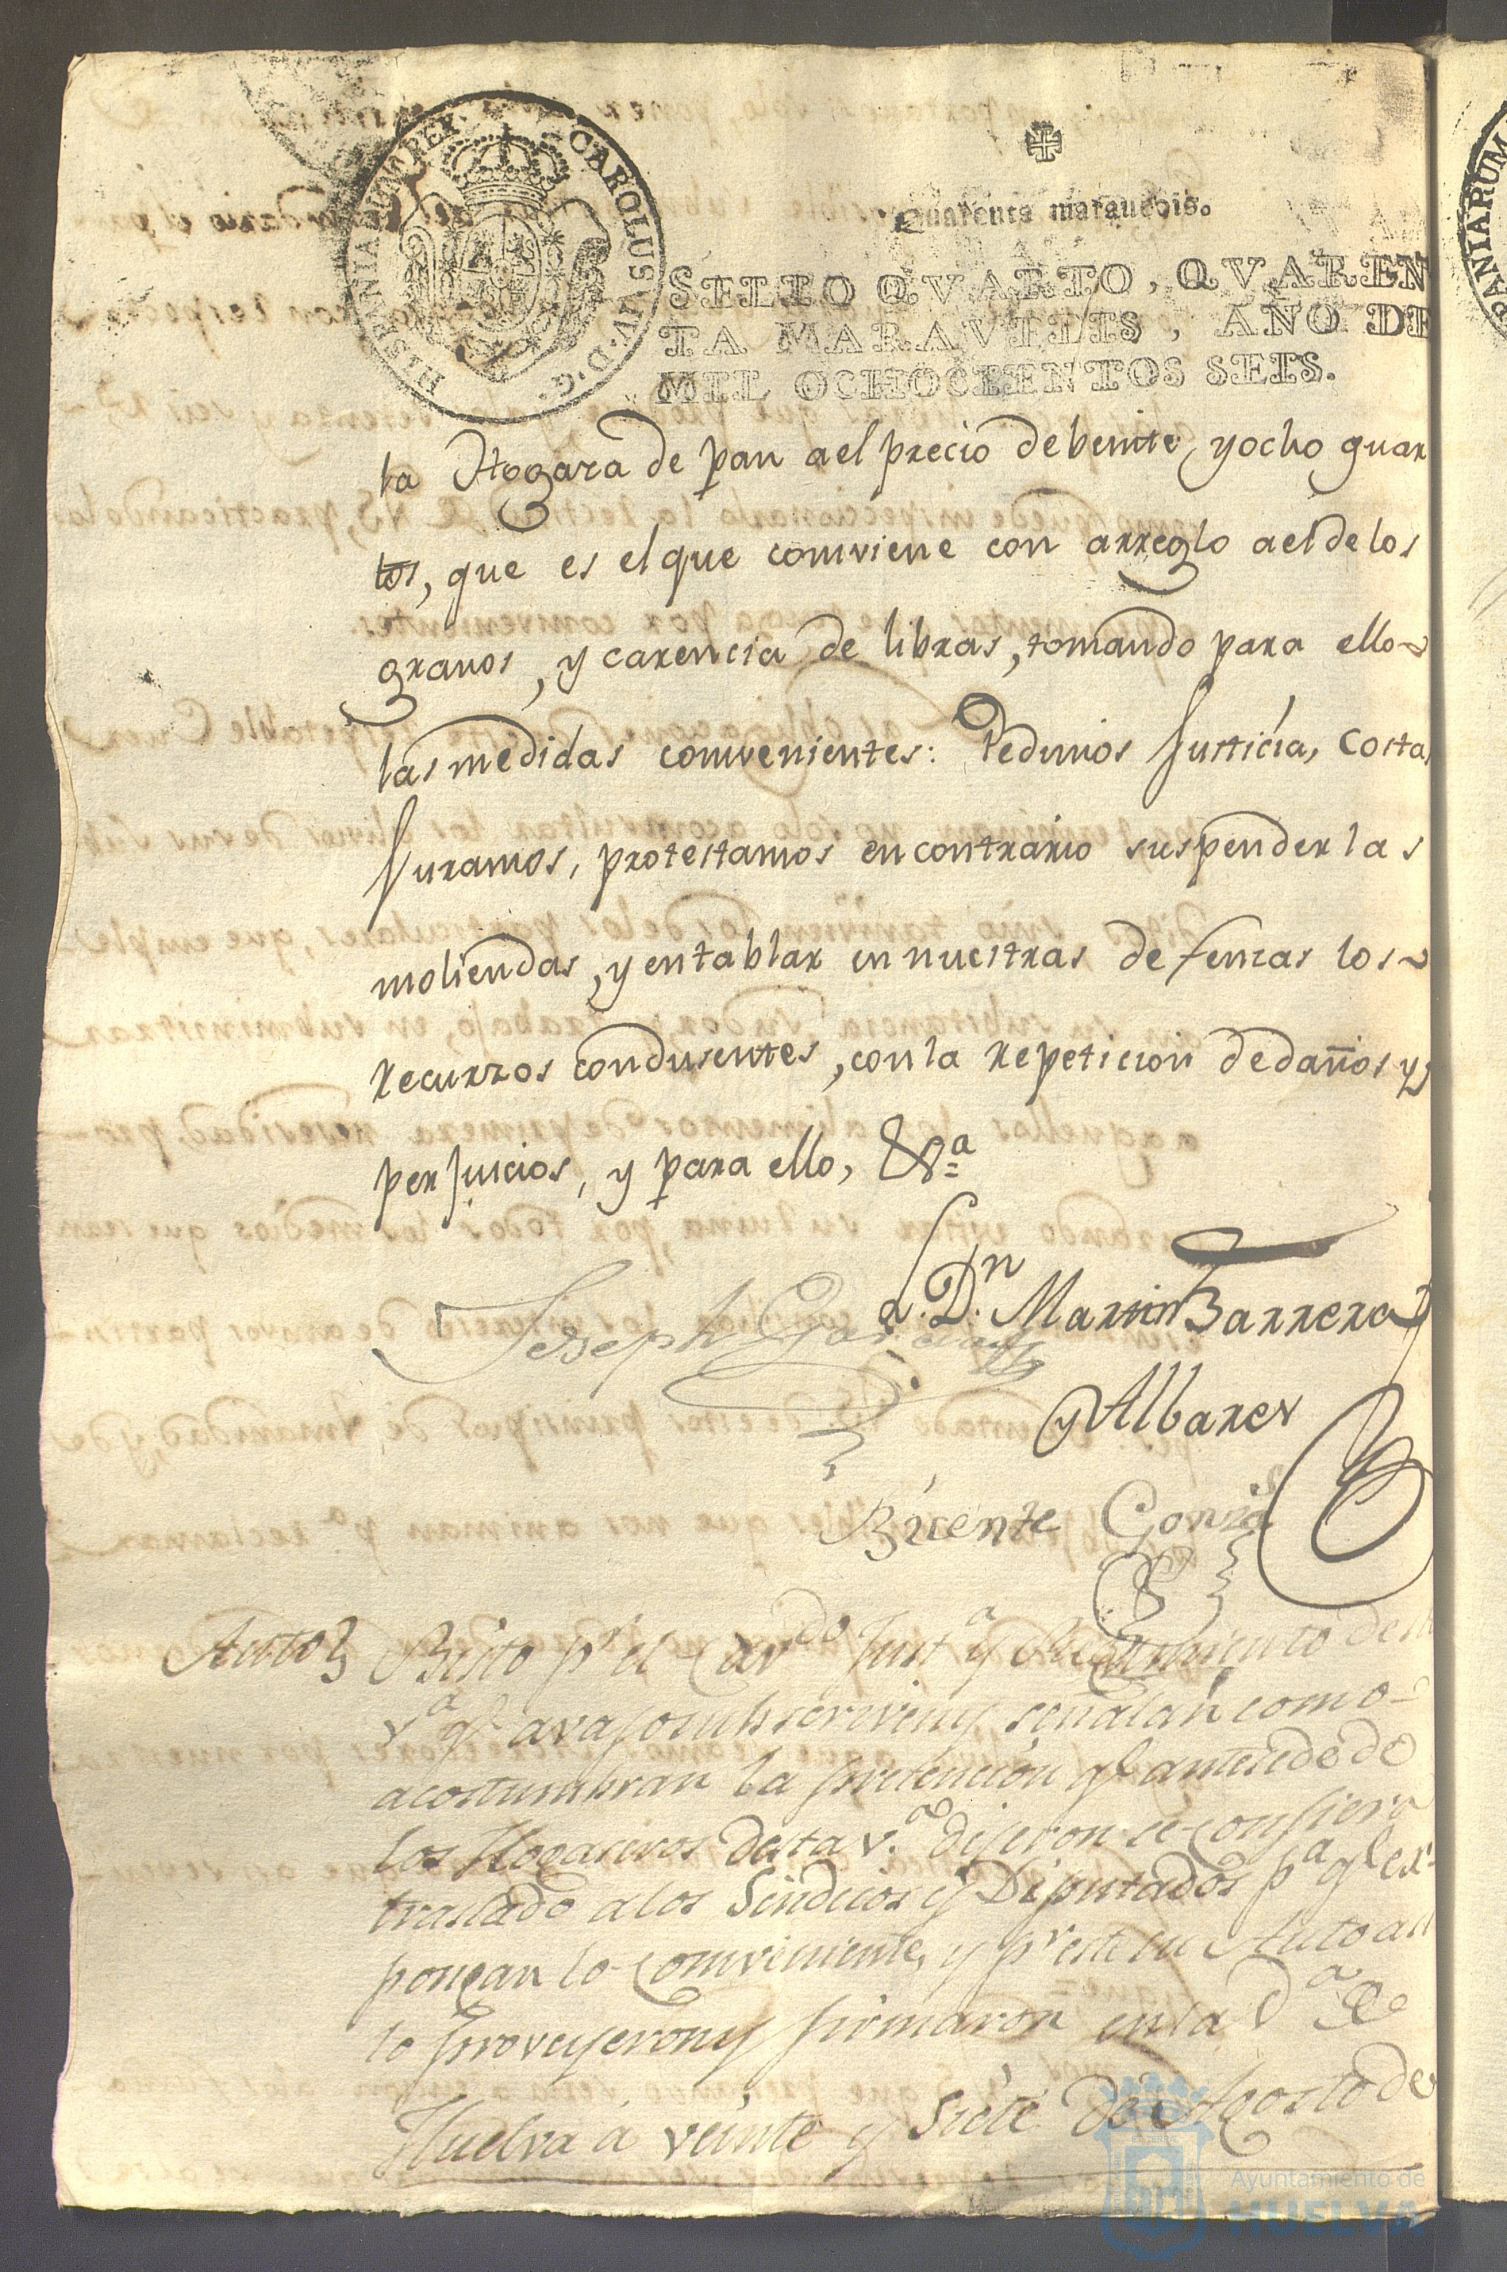 HISPANIAR REX. CAROLUS IV D.G.
Quarenta marauedis.
SELLO QVARTO, QVAREN
TA MARAVEDIS, AÑO DE
MIL OCHOCIENTOS SEIS.
la Hogaza de pan a el precio de beinte y ocho quar
tos, que es el que comviene con arreglo a el de los
granos, y carencia de libras, tomando para ello
las medidas comvenientes: Pedimos Justicia, costas
Juramos, protestamos en contrario suspender las
moliendas, y entablar en nuestras defenzas los
recurzos condusentes, con la repeticion de daños y
perjuicios, y para ello, &ª
Joseph Garcia
a. Dn. Martin Barrera
y Albarez
Bicente Gonzs
Auto
Bisto pr el Cavdo Justª y Regimiento desta
vª qe avajo subscriven y señalan como
acostumbran la pretencion qe antesede de
los Hogaseros desta vª dijeron se confiera
traslado a los Sindicos y Diputados pª qe ex
pongan lo comveniente, y pr este su Auto asi
lo proveyeron y firmaron en la Vª de
Huelva á veinte y Siete de Agosto de
Ayuntamiento de
HUELVA
PANIARUM